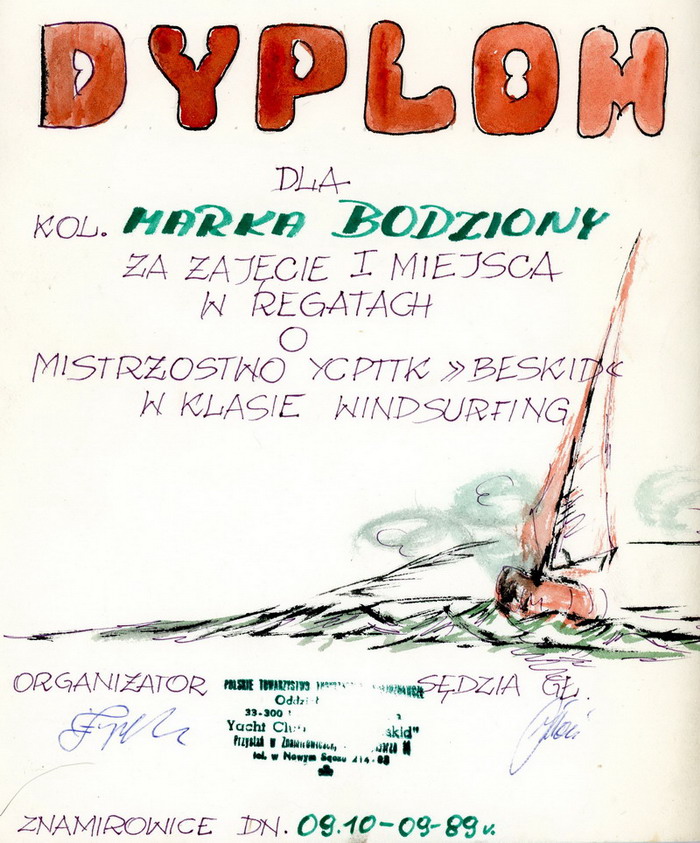 DYPLOM
DLA
KOL. MARKA BODZIONY
ZA ZAJĘCIE I MIEJSCA
W REGATACH
O
MISTRZOSTWO YCPTTK »BESKID«
W KLASIE WINDSURFING
ORGANIZATOR
POLSKIE TOWARZYSTWO
Oddział
33-300
Yacht Clu skid"
Przystań w Znamirowicach,
tel. w Nowym Sączu 214-08
SĘDZIA GŁ.
ZNAMIROWICE DN. 09.10-09-89 r.